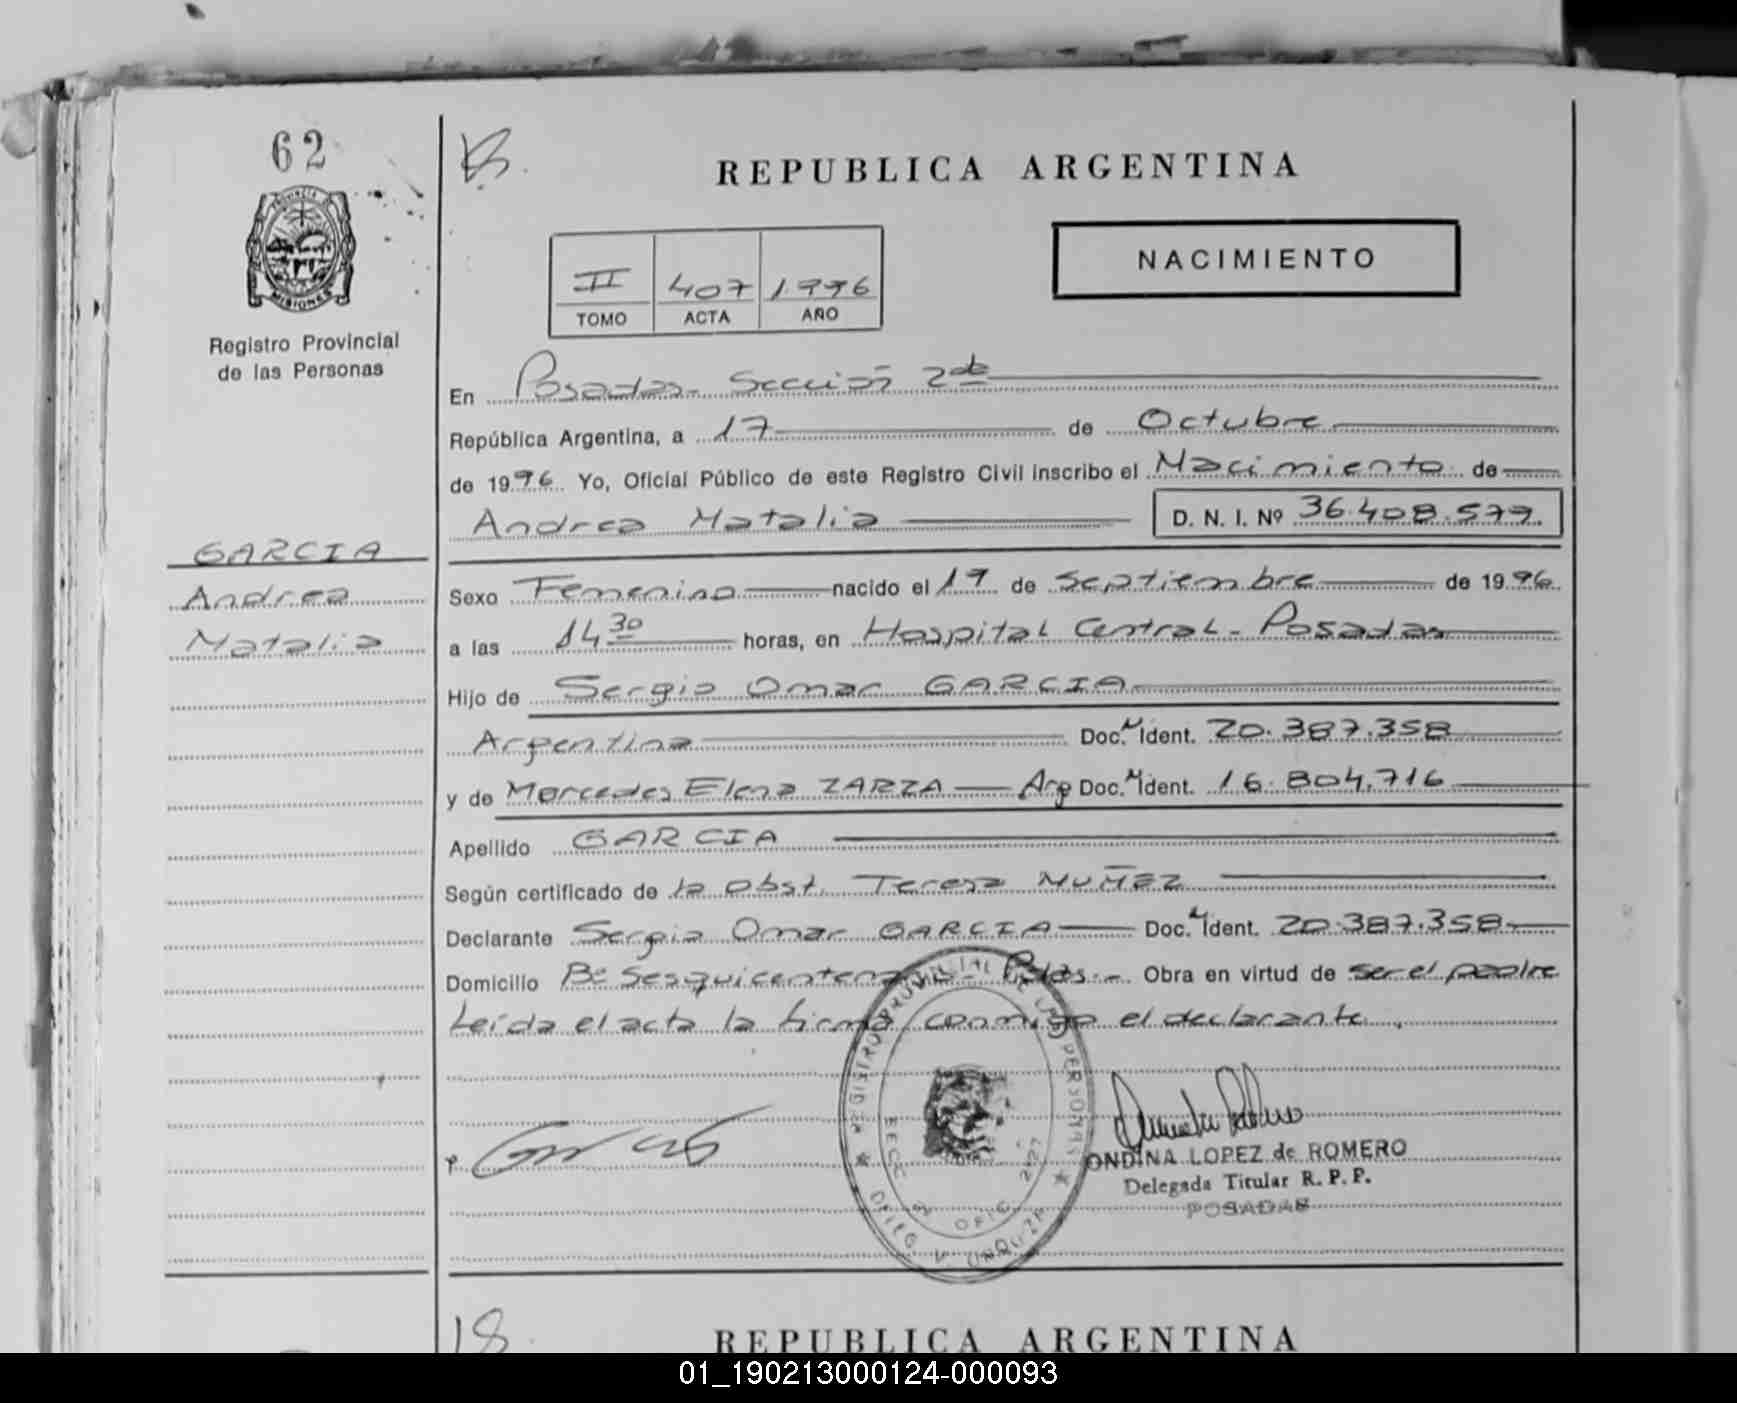 62
REPUBLICA ARGENTINA
NACIMIENTO
II 407 1996
TOMO ACTA AÑO
PROVINCIA DE MISIONES
Registro Provincial
de las Personas
En Posadas - Sección 2da
República Argentina, a 17 de Octubre
de 1996 Yo, Oficial Público de este Registro Civil inscribo el Nacimiento de
Andrea Natalia D. N. I. Nº 36.408.577.
GARCIA
Andrea
Natalia
Sexo Femenino nacido el 17 de Septiembre de 1996
a las 14 30 horas, en Hospital Central - Posadas
Hijo de Sergio Omar GARCIA
Argentina Doc. N Ident. 20.387.358
y de Mercedes Elena ZARZA Arg Doc. N Ident. 16.804.716
Apellido GARCIA
Según certificado de la Obst. Teresa MUÑEZ
Declarante Sergio Omar GARCIA Doc. N Ident. 20.387.358
Domicilio Bº Sesquicentenario - Pdas.- Obra en virtud de ser el padre
Leída el acta la firma conmigo el declarante.
REGISTRO PROVINCIAL DE LAS PERSONAS
ONDINA LOPEZ de ROMERO
Delegada Titular R. P. P.
POSADAS
18
REPUBLICA ARGENTINA
01_190213000124-000093